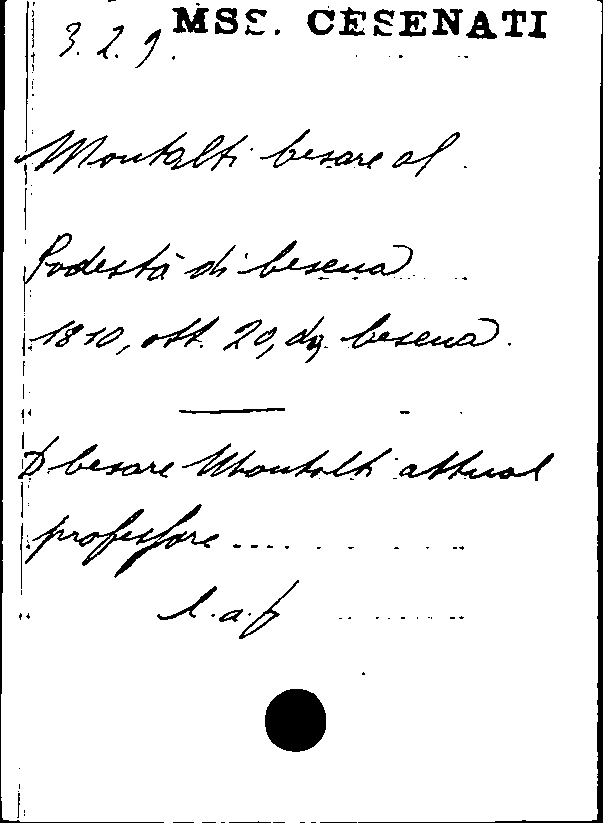 MSS. CESENATI
3.2.9.
Montalti Cesare al
Podestà di Cesena
1810, ott. 20, da Cesena.
D Cesare Montalti attual
professore ....
l.a.f